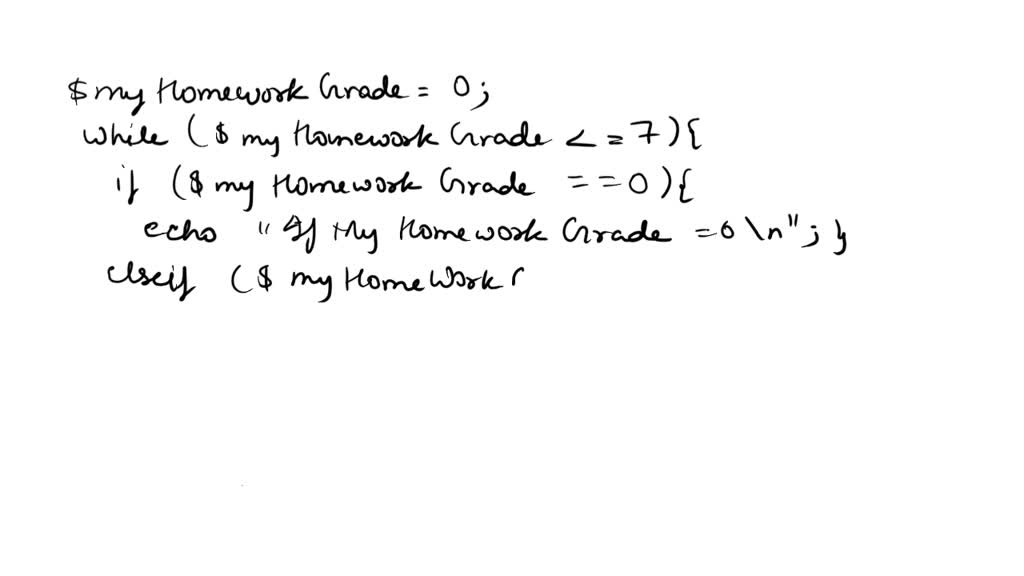 $ my Homework Grade = 0;
while ($ my Homework Grade <= 7){
if ($ my Homework Grade == 0){
echo "If My Homework Grade =0 \n"; }
elseif ($ my HomeWork (